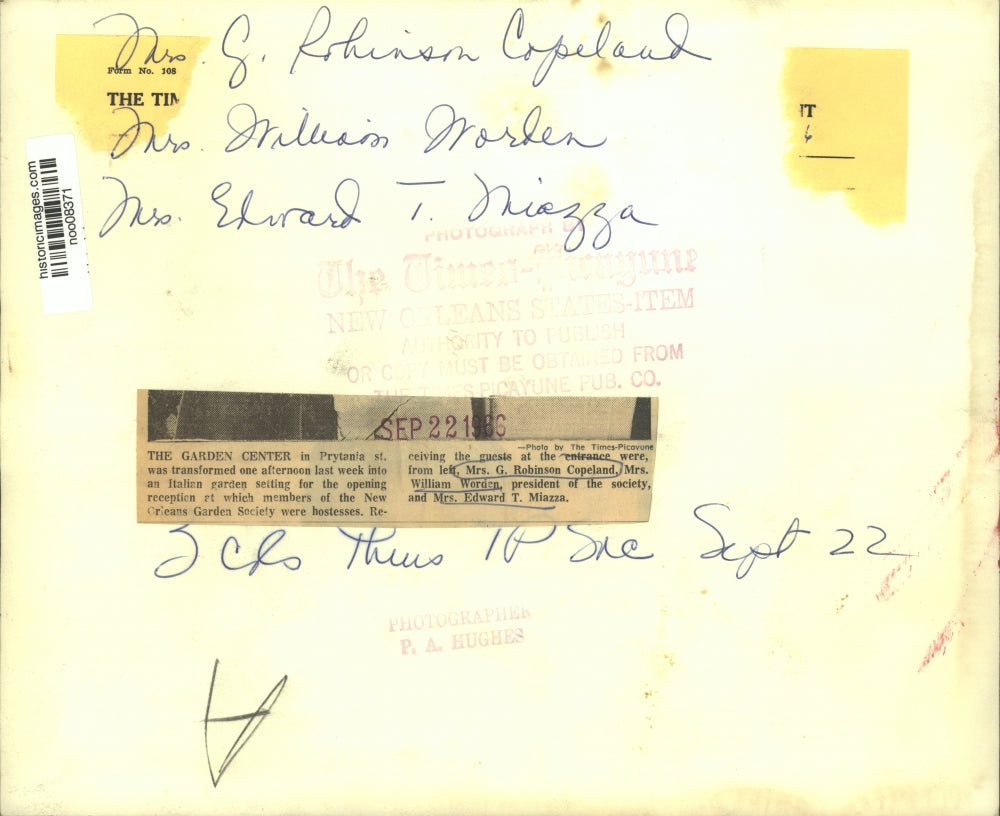 Mrs. G. Robinson Copeland
Form No. 108
THE TIM
Mrs. William Worden
Mrs. Edward T. Miazza
historicimages.com
noo08371
PHOTOGRAPH BY
The Times-Picayune
NEW ORLEANS STATES-ITEM
AUTHORITY TO PUBLISH
OR COPY MUST BE OBTAINED FROM
THE TIMES PICAYUNE PUB. CO.
SEP 22 1966
—Photo by The Times-Picayune
THE GARDEN CENTER in Prytania st.
was transformed one afternoon last week into
an Italian garden setting for the opening
reception at which members of the New
Orleans Garden Society were hostesses. Re-
ceiving the guests at the entrance were,
from left, Mrs. G. Robinson Copeland, Mrs.
William Worden, president of the society,
and Mrs. Edward T. Miazza.
3 cls Thurs TP Soc Sept 22
PHOTOGRAPHER
P. A. HUGHES